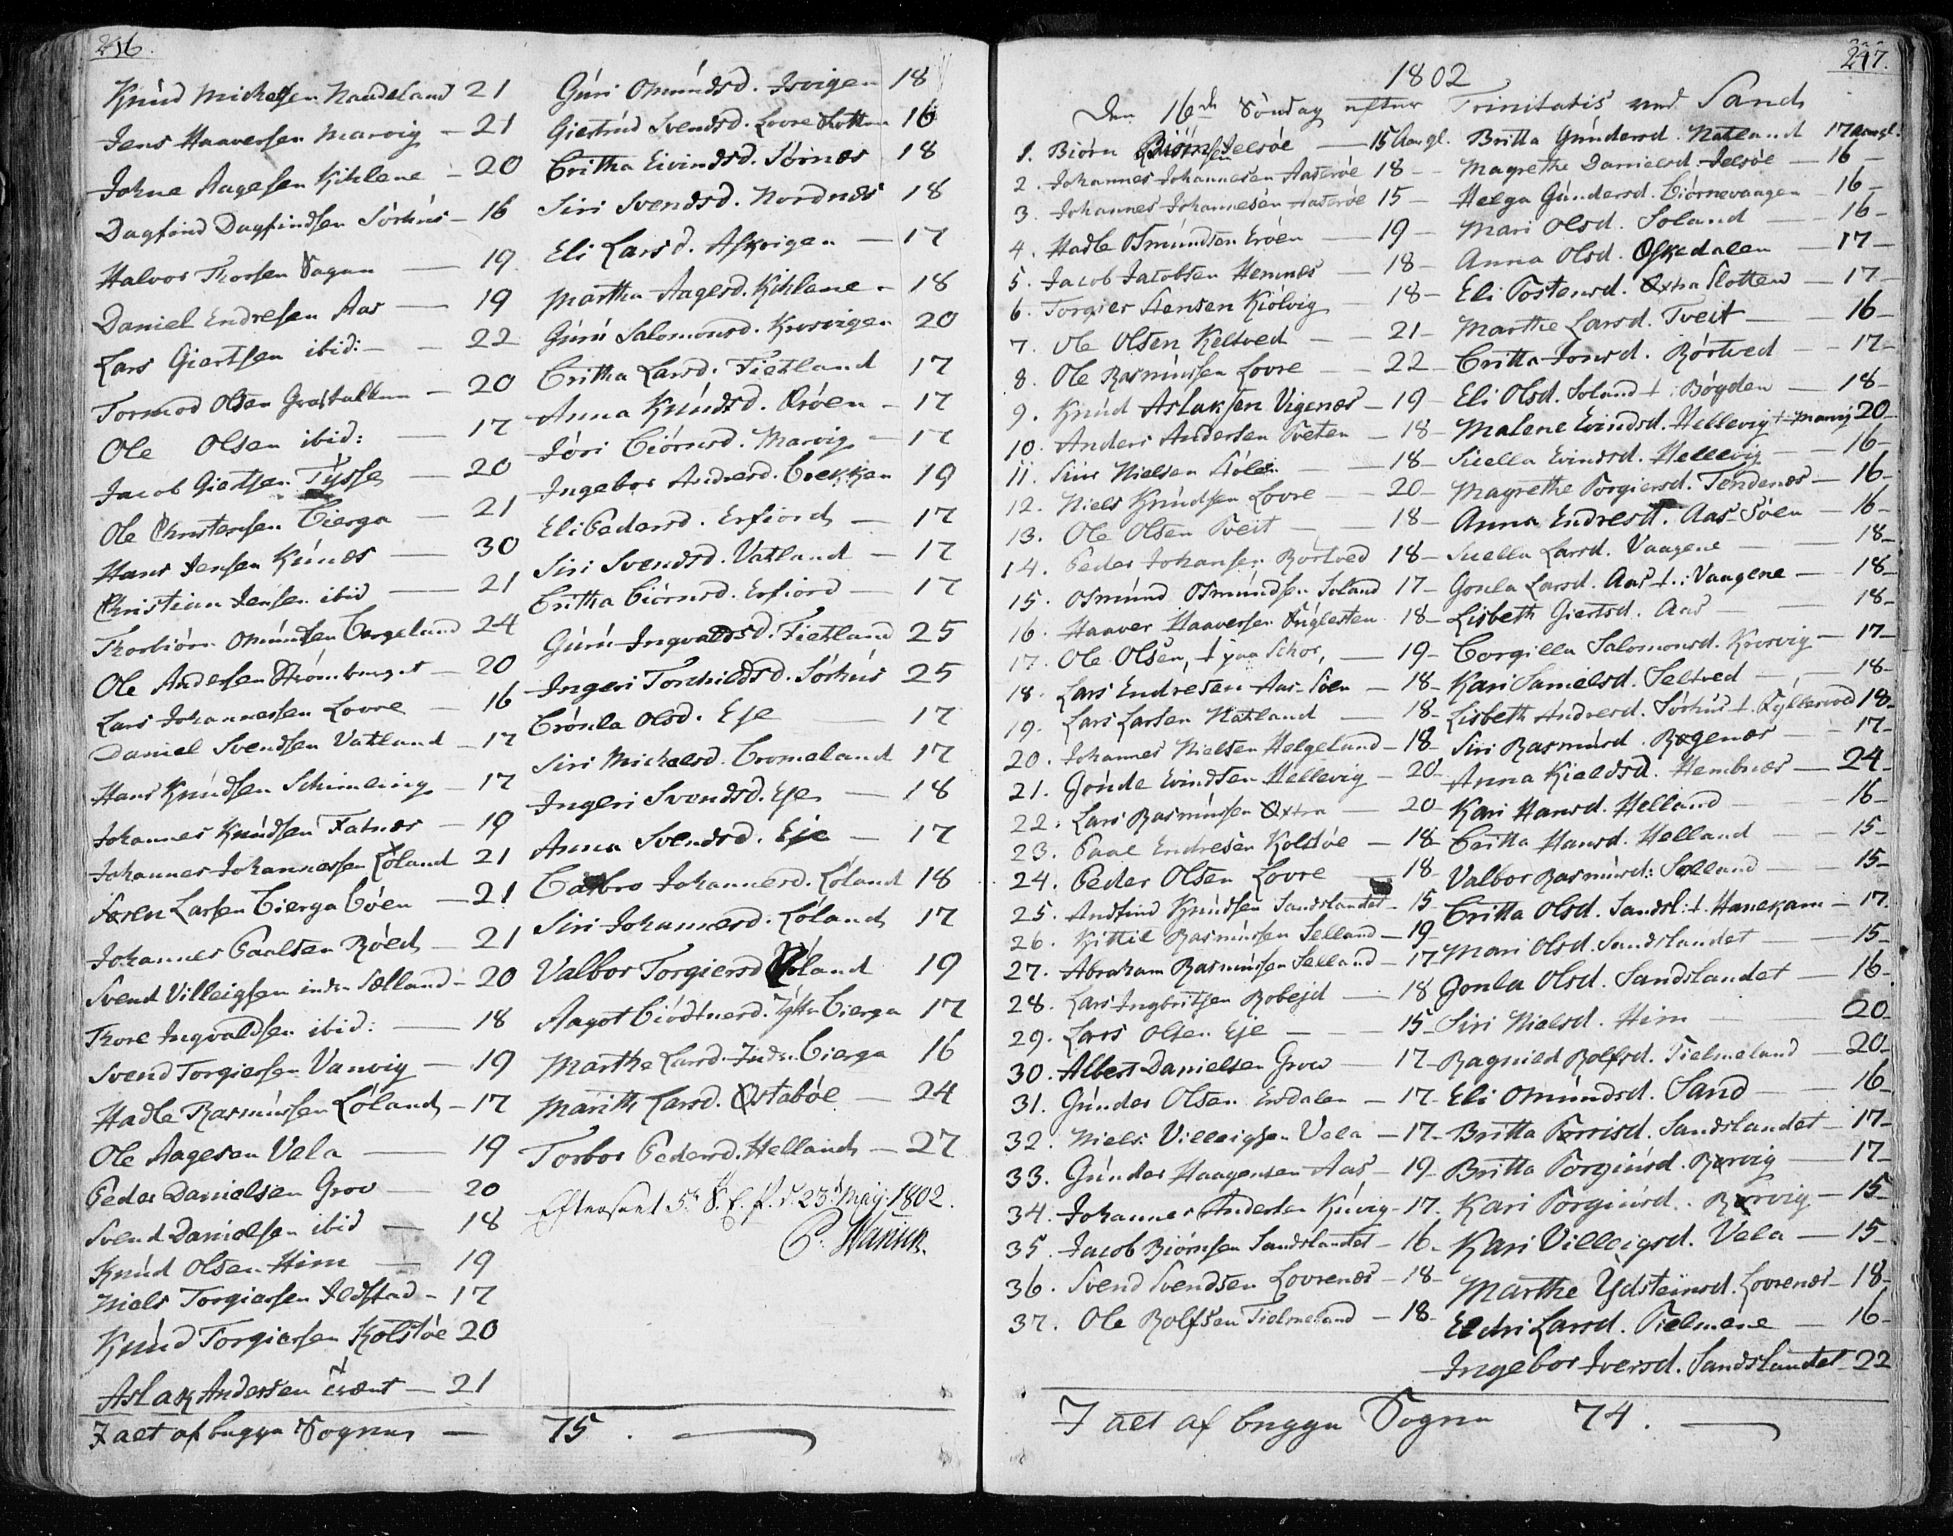 216.
Knúd Michelsen Naudeland 21
Jens Haaversen Marvig – 21
Johne Aagesen Kihlene – 20
Dagfind Dagfindsen Sörhús – 16
Halvor Thorsen Vagan — 19
Daniel Endresen Aas — 19
Lars Giertsen ibid: — 22
Tormod Olsen – 20
Ole Olsen ibid: — 17
Jacob Giertsen Tysse — 20
Ole Christensen Bierga – 21
Hans Jensen — 30
Christian Jensen ibid — 21
Thorbiörn Omúndsen Bergeland 24
Ole Andersen – 20
Lars Johannessen Lovre – 16
Daniel Svendsen Vatland – 17
Hans Knúdsen Schimeling – 17
Johannes Knúdsen Fatnæs – 19
Johannes Johannessen Löland 21
Søren Larsen Bierga Böen – 21
Johannes Paalsen Röed – 21
Svend Villeigsen indr. Sælland – 20
Thore Ingvaldsen ibid: — 18
Svend Torgiersen Vanvig – 19
Hadle Rasmúnsen Löland – 17
Ole Aagesen Vela — 19
Peder Danielsen Grov — 20
Svend Danielsen ibid — 18
Knúd Olsen Him — 19
Niels Torgiersen Ildstad – 17
Knúd Torgiersen Kolstöe 20
Aslak Andersen – 21
I alt af begge Sogner — 75.
Gúri Omúndsd. 18
Giertrúd Svendsd. Lovre 16
Britha Eivindsd. Sörnæs 18
Siri Svendsd. Nordnæs 18
Eli Larsd. Askvigen — 17
Martha Aagesd. Kihlane – 18
Gúrú Salomonsd. Krosvigen 20
Britha Larsd. Fietland 17
Anna Knúdsd. Eröen – 17
Jöri Biörnsd. Marvig – 17
Ingebor Andersd. Brekken 19
Eli Pedersd. Erfiord — 17
Siri Svendsd. Vatland – 17
Britha Biörnsd. Erfiord — 17
Gúrú Ingvaldsd. Fietland 25
Ingeri Torchildsd. Sörhús 25
Brönla Olsd. Eje — 17
Siri Michelsd. Bromeland 17
Ingeri Svendsd. Eje — 18
Anna Svendsd. Eje — 17
Barbro Johannesd. Löland 18
Siri Johannesd. Löland 17
Valbor Torgiersd Löland 19
Aagot Bierga 17
Marthe Larsd. Indr. Bierga 16
Marith Larsd. Østaböe — 24
Torbor Pedersd. Helland – 27
23 May 1802.
247.
1802
Den 16de Söndag efter Trinitatis ved Sand
1. Biørn Biørnsen Jelsöe — 15 Aar gl. Britta Gúndersd. Natland 17 Aar gl.
2. Johannes Johannesen Aaseröe 18 – Magrethe Danielsd Jelsöe – 16 –
3. Johannes Johannesen Aaseröe 15 – Helga Gúndersd. Biörnevaagen – 16 –
4. Hadle Osmúndsen Eröen — 19 – Mari Olsd. Soland — 16 –
5. Jacob Jacobsen Hemnæs – 18 – Anna Olsd. Øskedalen – 17 –
6. Torgier Hansen Kiölvig – 18 – Eli Tostensd. Øxtra Slotten – 17 –
7. Ole Olsen Keltved – 21 – Marthe Larsd. Tveit — 16 –
8. Ole Rasmúnsen Lovre – 22 – Britta Jonsd. Rörtved – 17 –
9. Knúd Aslaksen Vigenæs – 19 – Eli Olsd. Soland . Bögden — 18 –
10. Anders Andersen Tveten – 18 – Malene Evindsd. Hellevig Marvig 20 –
11. Siúr Nielsen — 18 – Siella Evindsd. Hellevig — 16 –
12. Niels Knúdsen Lovre — 20 – Magrethe Torgiersd. Tendenæs – 16 –
13. Ole Olsen Tveit — 18 – Anna Endresd. Aas-Söen – 16 –
14. Peder Johansen Rörtved 18 – Siella Larsd. Vaagene — 18 –
15. Osmúnd Osmúndsen Soland 17 – Gonla Larsd. Aas .: Vaagene — 18 –
16. Haaver Haaversen Fúglesten 18 – Lisbeth Giertsd. Aas — 18 –
17. Ole Olsen, paa Schor, — 19 – Borgilla Salomonsd. Krosvig – 17 –
18. Lars Endresen Aas-Söen – 18 – Kari Samelsd. Seltved — 18 –
19. Lars Larsen Natland — 18 – Lisbeth Andersd. Sörhús 18 –
20. Johannes Nielsen Helgeland – 18 – Siri Rasmúsd. Bøgenæs — 17 –
21. Gönde Evindsen Hellevig – 20 – Anna Kieldsd. Hembnæs — 24 –
22. Lars Rasmúnsen Øxtra – 20 Kari Hansd. Helland — 16 –
23. Paal Endresen Kolstöe – 18 – Britta Hansd. Helland — 15 –
24. Peder Olsen Lovre — 18 – Valbor Rasmúsd: Selland — 15 –
25. Andfind Knúdsen Sandslandet – 15 – Britta Olsd. Sandsl: . Hanekam – 17
26. Kittil Rasmúnsen Selland – 19 – Mari Olsd. Sandslandet — 15 –
27. Abraham Rasmúnsen Selland – 17 Gonla Olsd. Sandslandet — 16 –
28. Lars Ingbritsen Robejd — 18 Siri Nielsd. Him — 20
29. Lars Olsen Eje – 15 – Ragnild Rolfsd. Tielmeland – 20 –
30. Albert Danielsen Grov – 17 – Eli Omúndsd. Sand — 16 –
31. Gúnder Olsen Ersdalen – 17 – Britta Torrisd. Sandslandet – 17 –
32. Niels Villeigsen Vela – 17 – Britta Torgiúrsd. Børvig — 17 –
33. Gúnder Haagensen Aas – 19 – Kari Torgiúrsd. Børvig – 15 –
34. Johannes Andersen – 17. Kari Villeigsd. Vela — 15 –
35. Jacob Biörnsen Sandslandet – 16 – Marthe Ydsteinsd. Lovrenæs – 18 –
36. Svend Svendsen Lovrenæs – 18 – Eldri Larsd. Tielmene — 16 –
37. Ole Rolfsen Tielmeland – 18 – Ingebor Iversd. Sandslandet 22
I alt af begge Sogne 74. —